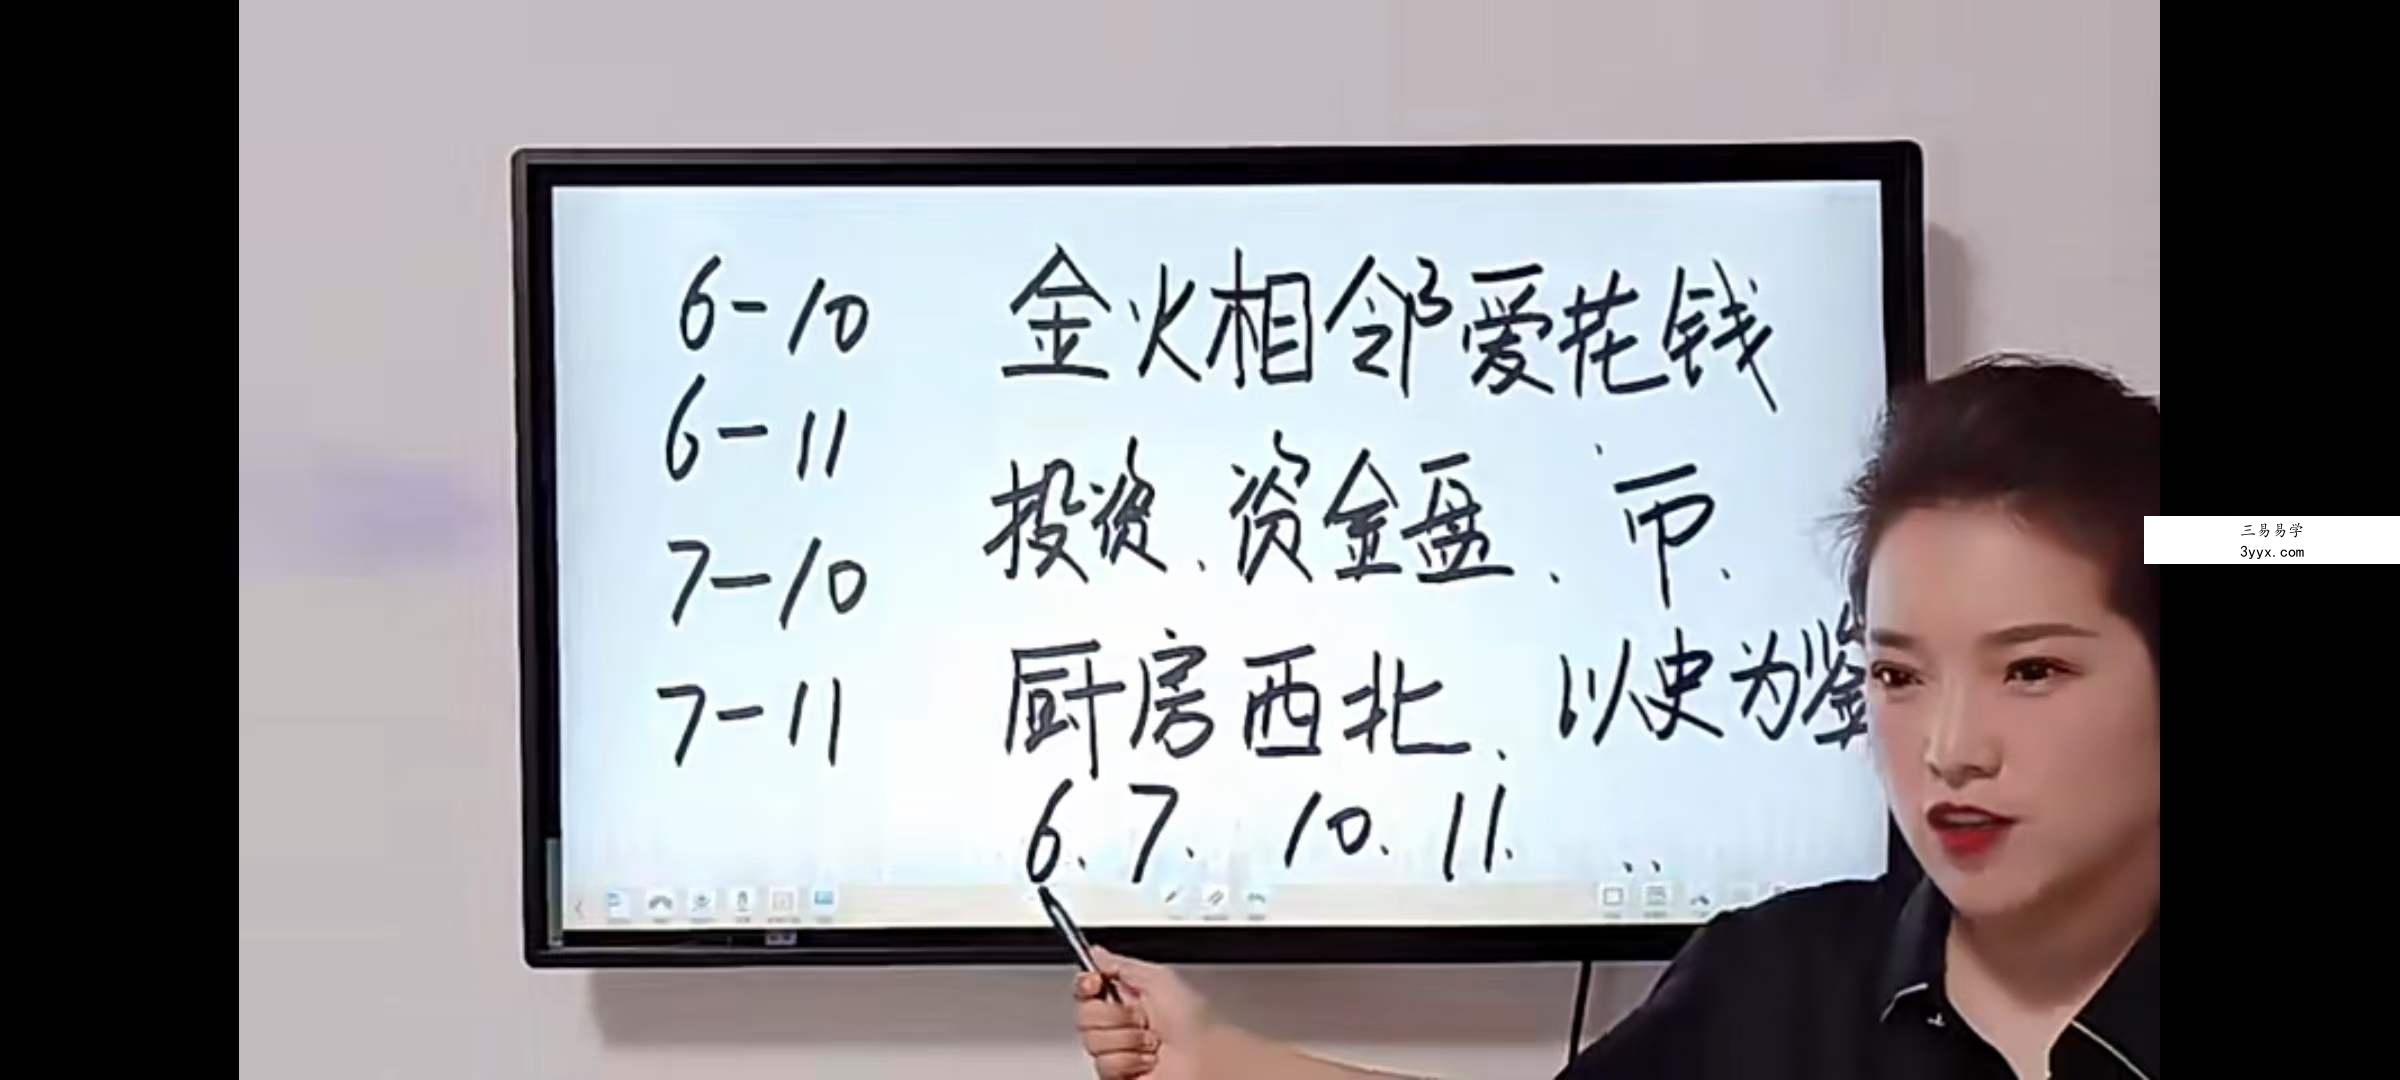 6-10 金火相邻爱花钱
6-11 投资、资金盘、币、
7-10 厨房西北、以史为鉴
7-11 6、7、10、11、
三易易学
3yyx.com